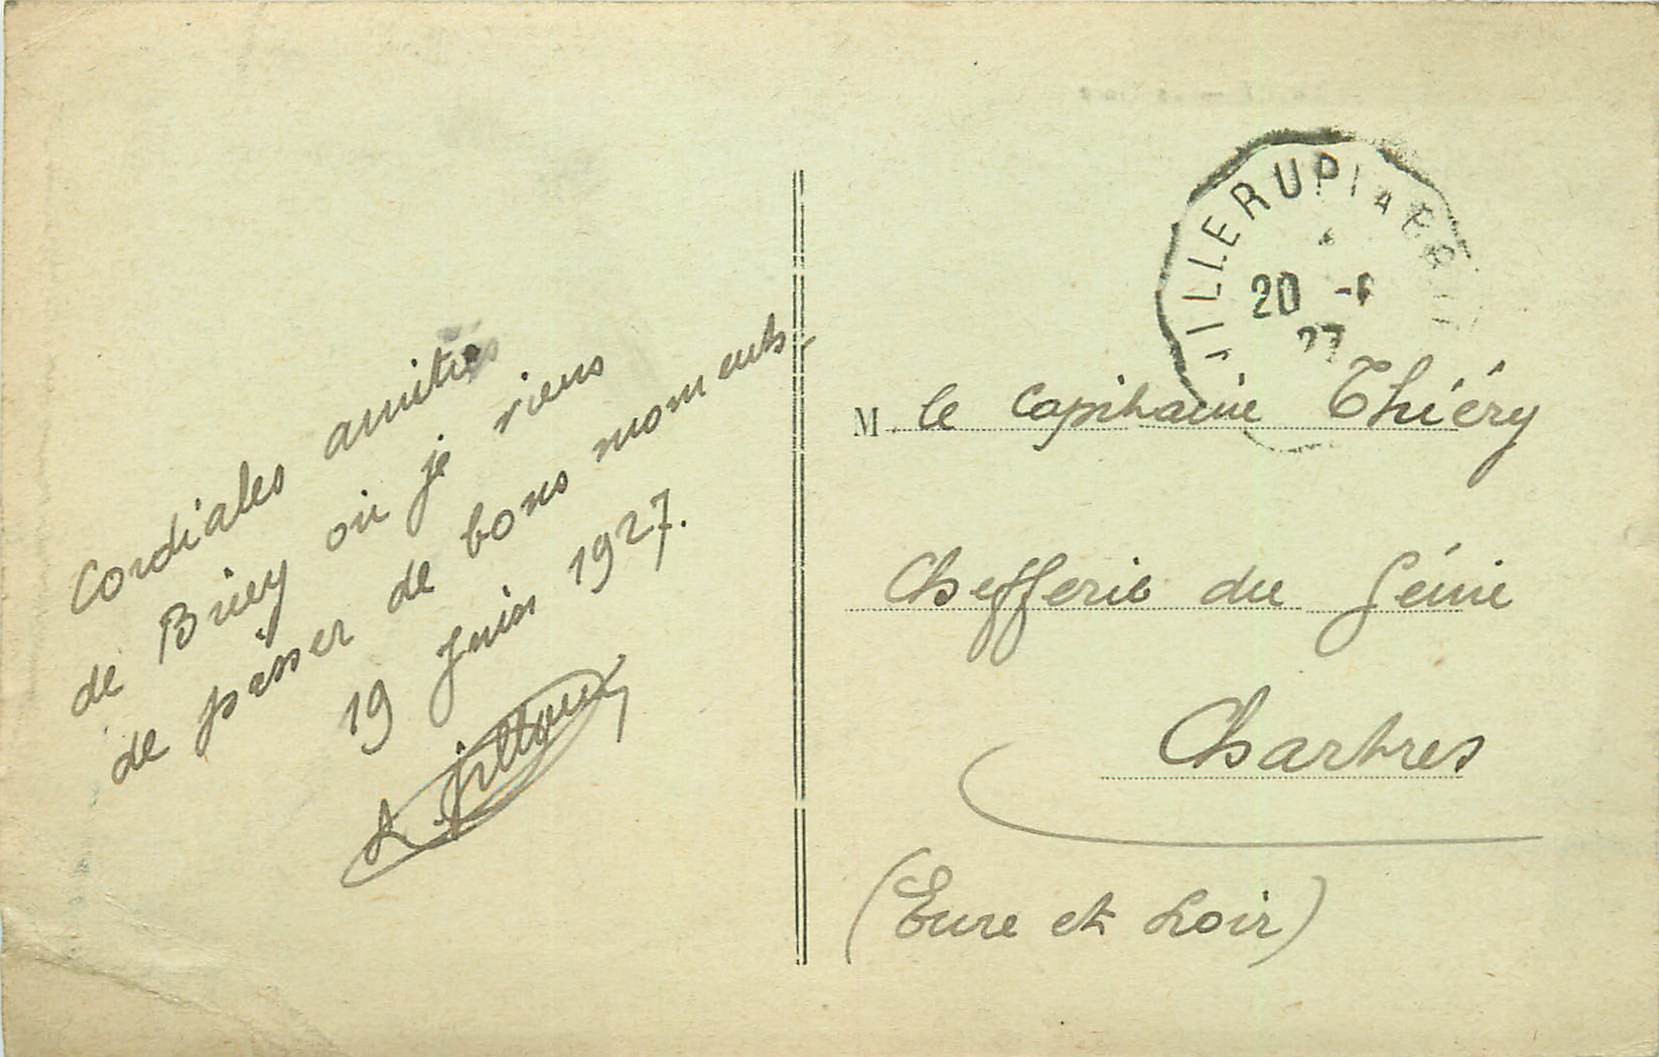 Cordiales amitiés
de Briey où je viens
de passer de bons moments.
19 Juin 1927.
VILLERUPT A
20 -6
27
M. le Capitaine Thiéry
Chefferie du Génie
Chartres
(Eure et Loir)